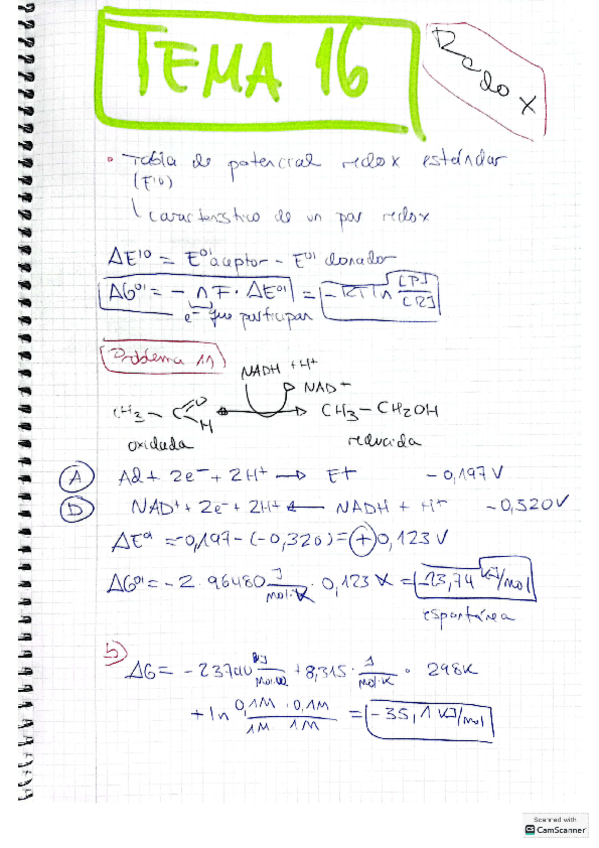 TEMA 16
Redox
• Tabla de potencial redox estándar
(E'º)
característico de un par redox
ΔE'º = Eº' aceptor - Eº' donador
ΔGº' = - n F · ΔEº' = - RT ln [P]/[R]
e⁻ que participan
Problema 11
NADH + H⁺
NAD⁺
CH₃ - C O H → CH₃ - CH₂OH
oxidada reducida
A Ad + 2e⁻ + 2H⁺ → Et - 0,197 V
D NAD⁺ + 2e⁻ + 2H⁺ ← NADH + H⁺ - 0,320 V
ΔEº' = -0,197 - (-0,320) = + 0,123 V
ΔGº' = - 2 · 96480 J/mol·V · 0,123 V = -23,74 KJ/mol
espontánea
b)
ΔG = - 23740 + 8,315 · J/mol·K · 298K
+ ln 0,1M · 0,1M / 1M 1M = -35,1 KJ/mol
Scanned with
CS CamScanner